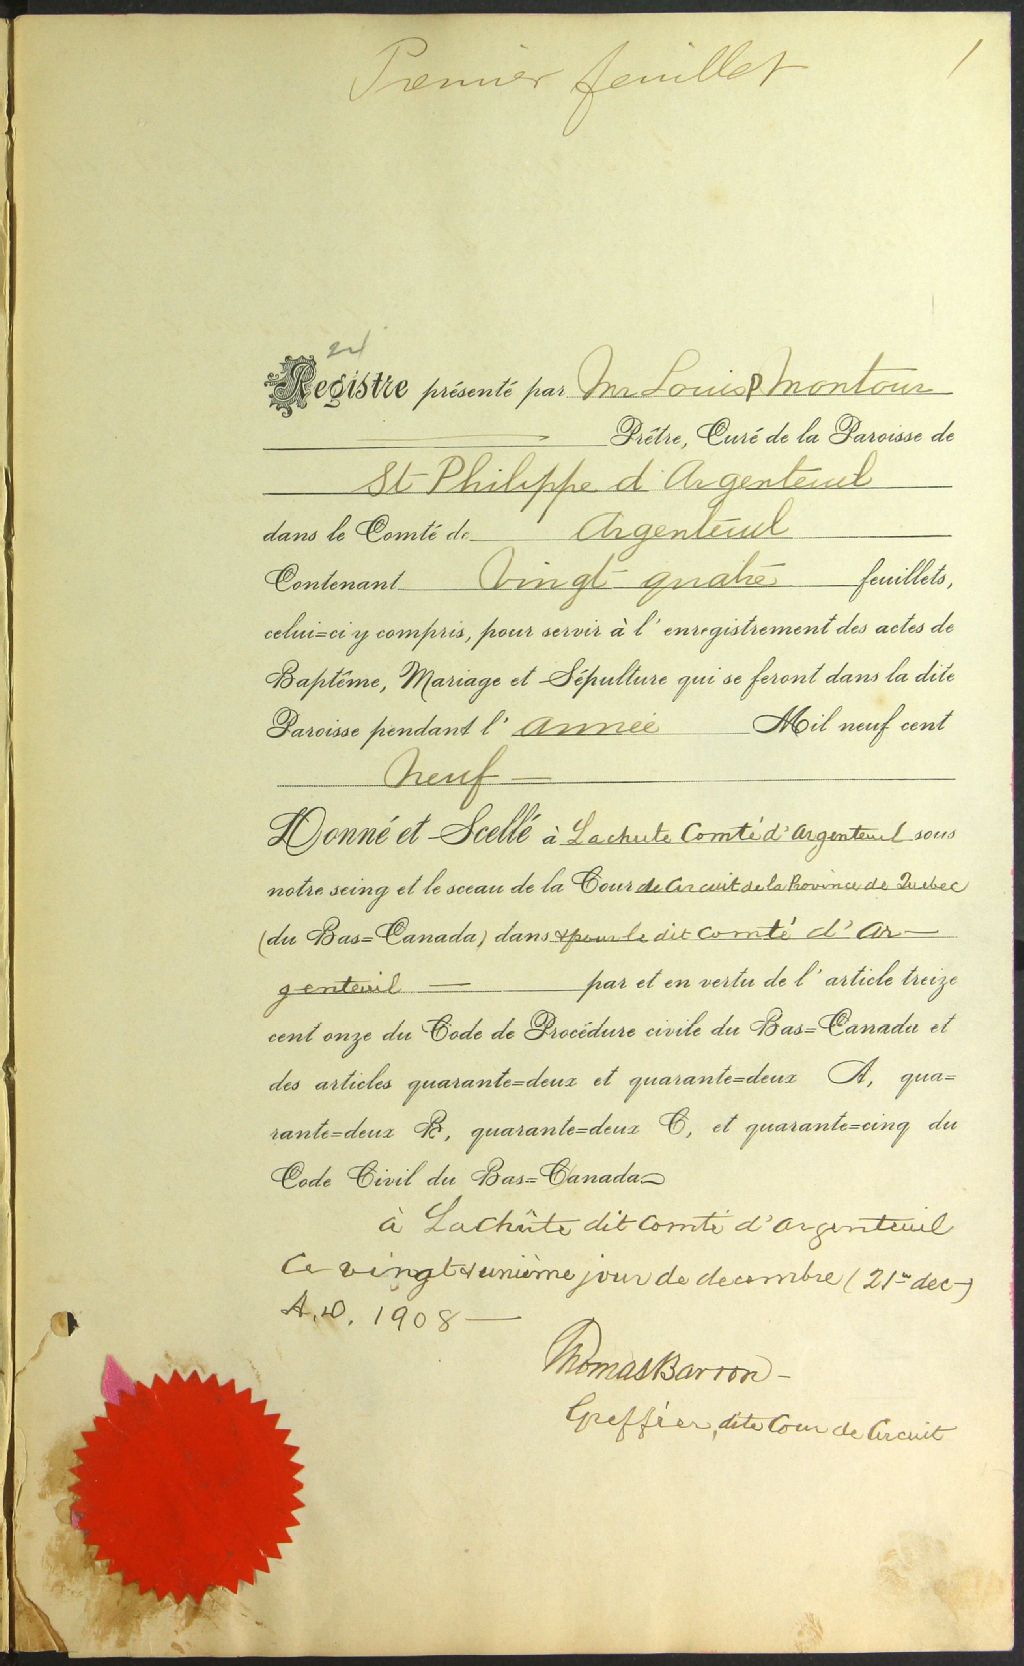 Premier feuillet 1
24
Registre présenté par Mr Louis P Montour
Prêtre, Curé de la Paroisse de
St Philippe d'Argenteuil
dans le Comté de Argenteuil
Contenant Vingt quatre feuillets,
celui=ci y compris, pour servir à l'enregistrement des actes de
Baptême, Mariage et Sépulture qui se feront dans la dite
Paroisse pendant l'année Mil neuf cent
Neuf
Donné et Scellé à Lachute Comté d'Argenteuil sous
notre seing et le sceau de la Cour de Circuit de la Province de Quebec
(du Bas=Canada) dans & pour le dit Comté d'Ar-
genteuil par et en vertu de l'article treize
cent onze du Code de Procédure civile du Bas=Canada et
des articles quarante=deux et quarante=deux A, qua=
rante=deux B, quarante=deux C, et quarante=cinq du
Code Civil du Bas=Canada
à Lachûte dit Comté d'Argenteuil
Ce vingt & unième jour de decembre (21me dec)
A.D. 1908
Thomas Barron
Greffier, dite Cour de Circuit